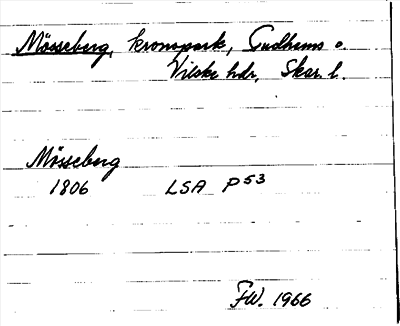 Mösseberg, kronopark, Gudhems o.
Vilske hdr, Skar. l.
Mösseberg
1806 LSA P53
FW. 1966